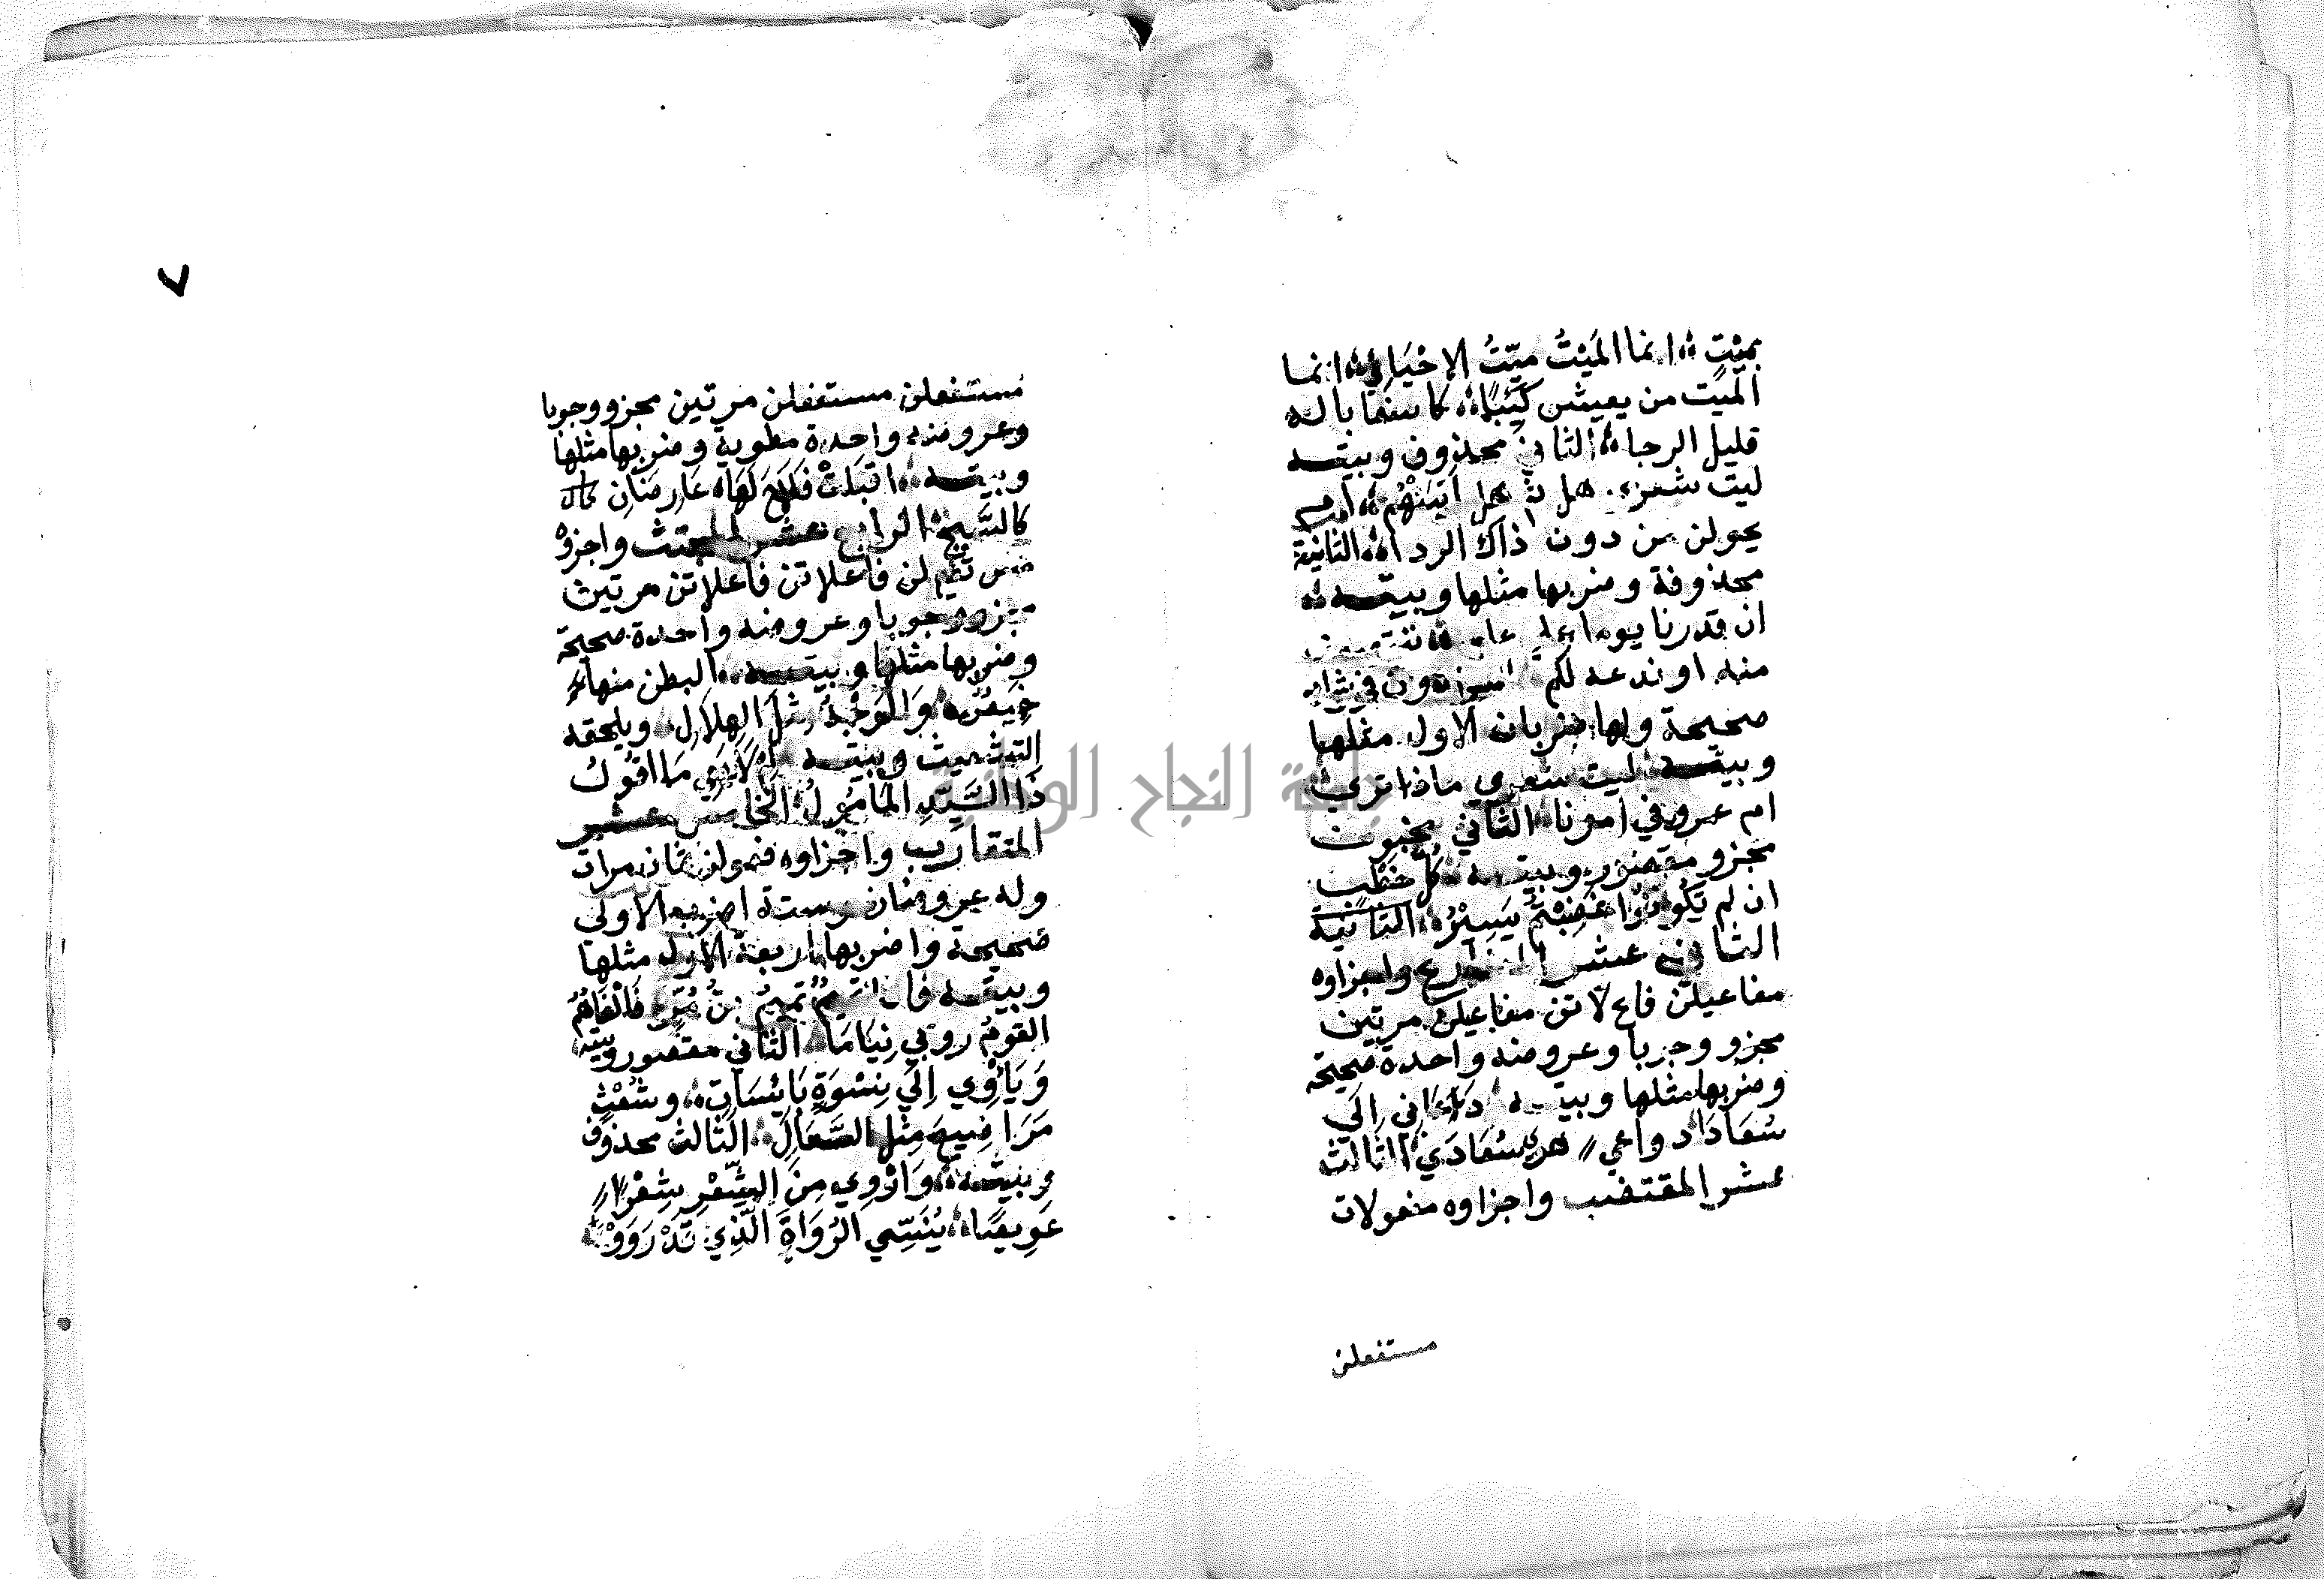 بمَيْتٍ ؞ انما المَيْتُ ميّتُ الاحْيَاءِ ؞ انما
الميت من يعيش كئيبًا ؞ كاسفا باله
قليل الرجاء ؞ الثاني محذوف وبيته
ليت شعري هل ثم هل آتينْهُمُ ؞ ام
يحولن من دون ذاك الردا ؞ الثانية
محذوفة وضربها مثلها وبيته ؞
ان قدرنا يوما على عامر
منه او ندعه لكم
صحيحة ولها ضربان الاول مثلها
وبيته ليت شعري ماذا ترى
ام عمرو في امرنا الثاني مخبون
مجزو مقصور وبيته كلُّ خَطْبٍ
ان لم تَكُونُوا غَضِبْتُمُ يَسِيْرُ ؞ الثانية
الثاني عشر المضارع واجزاوه
مفاعيلن فاع لاتن مفاعيلن مرتين
مجزو وجوبا وعروضه واحدة صحيحة
وضربها مثلها وبيته دعاني الى
سُعَادَا دواعي هوى سُعَادَي الثالث
عشر المقتضب واجزاوه مفعولات
مستفعلن
٧
مستفعلن مستفعلن مرتين مجزو وجوبا
وعروضه واحدة مطوية وضربها مثلها
وبيته ؞ اقبَلَتْ فَلَاحَ لَهَا ؞ عَارِضَانِ
كالسَّبَجِ ؞ الرابع عشر المجتث واجزوْ
مس تفع لن فاعلاتن فاعلاتن مرتين
مجزو وجوبا وعروضه واحدة صحيحة
وضربها مثلها وبيته ؞ البطن منها
خَمِيصٌ ؞ وَالوَجْهُ مثلُ الهِلَالِ ؞ ويلحقه
التشعيث وبيته لِمْ لَا يَعِي مَا اقُولُ
ذَا السَّيِّدِ المَأمُولُ ؞ الخامس عشر
المتقارب واجزاوه فعولن ثمان مرات
وله عروضان وستة اضرب الاولى
صحيحة واضربها اربعة الاول مثلها
وبيته فاما تَمِيمٌ تَمِيمُ بنُ مُرٍّ فَالْفَاهُمُ
القومُ رَوبَى نِيَامَا ؞ الثاني مقصور وبيته
وَيَأوِي اِلَى نِسْوَةٍ بَائِسَاتٍ ؞ وشُعْثٍ
مَرَاضِيعَ مِثْلِ السَّعَالِ ؞ الثالث محذوف
وبيته ؞ وَأرْوِي مِنَ الشِّعْرِ شِعْرًا
عَوِيصًا ؞ يُنَسِّي الرُوَاةَ الَّذِي قَدْ رَوَوْا
جامعة النجاح الوطنية